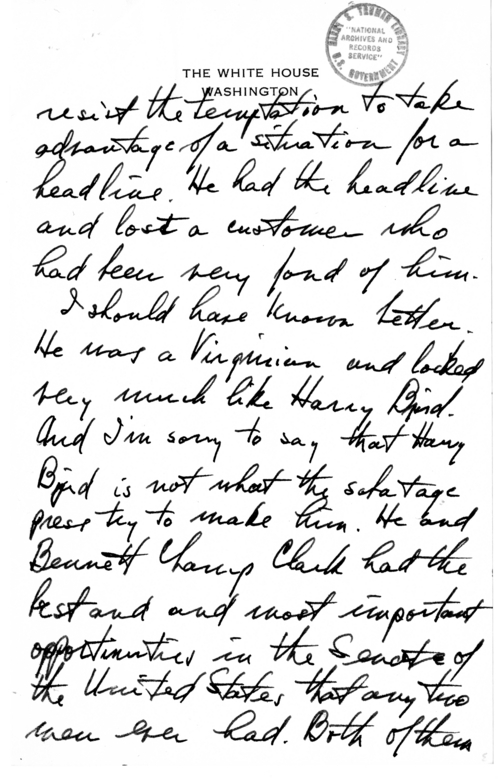 HARRY S. TRUMAN LIBRARY
"NATIONAL
ARCHIVES AND
RECORDS
SERVICE"
U.S. GOVERNMENT
THE WHITE HOUSE
WASHINGTON
resist the temptation to take
advantage of a situation for a
headline. He had the headline
and lost a customer who
had been very fond of him.
I should have known better.
He was a Virginian and looked
very much like Harry Byrd.
And I'm sorry to say that Harry
Byrd is not what the sabatage
press try to make him. He and
Bennett Champ Clark had the
best and and most important
opportinuties in the Senate of
the United States that any two
men ever had. Both of them